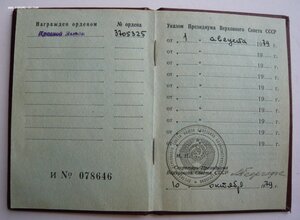 Награжден орденом
№ ордена
Красной Звезды
3705325
И № 078646
Указом Президиума Верховного Совета СССР
от 1 августа 1979
от " " 19
от " " 19
от " " 19
от " " 19
от " " 19
от " " 19
М. П.
Секретарь Президиума
Верховного Совета СССР
10 октября 1979